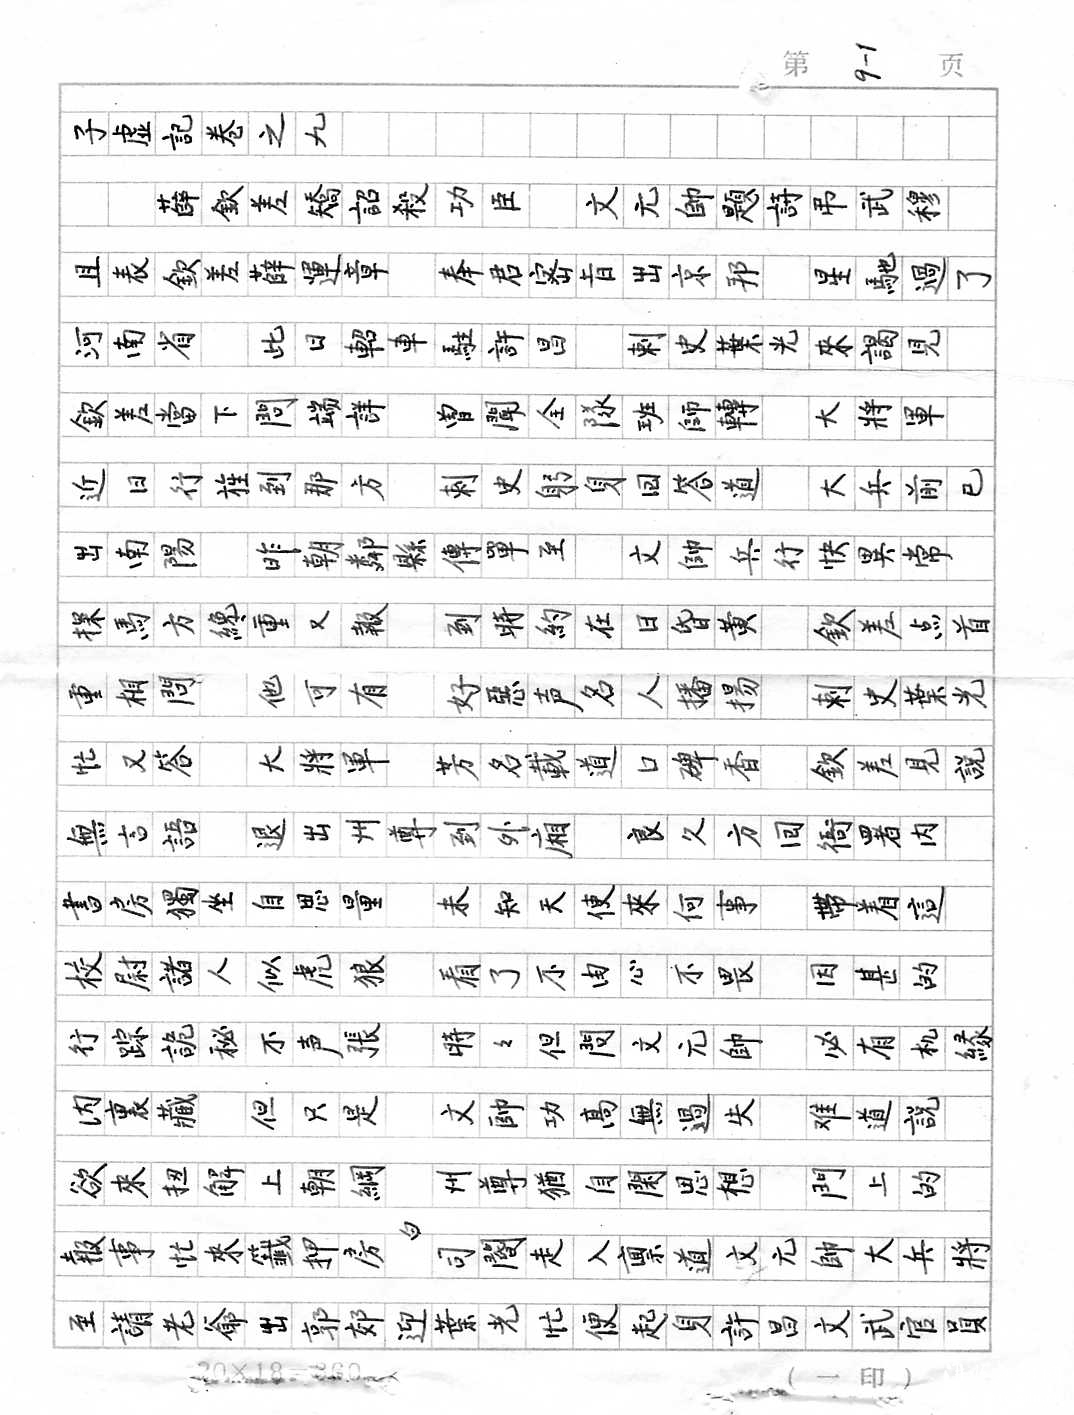 第 9-1 页
子虛記卷之九
薛欽差矯詔殺功臣 文元帥題詩吊武穆
且表欽差薛運章 奉君密旨出京邦 星馳過了
河南省 此日軺車駐許昌 刺史葉光來謁見
欽差當下問端詳 曾聞全隊班師轉 大將軍
近日行旌到那方 刺史躬身回答道 大兵前已
出南陽 昨朝鄰縣傳單至 文帥兵行快異常
探馬方纔重又報 到時約在日昏黄 欽差点首
重相問 他可有 好惡声名人播揚 刺史葉光
忙又答 大將軍 芳名載道口碑香 欽差見說
無言語 退出州尊到外廂 良久方回衙署内
書房獨坐自思量 未知天使來何事 帶着這
校尉諸人似虎狼 看了不由心不畏 因甚的
行踪詭秘不声張 時々但問文元帥 必有机緣
内裏藏 但只是 文帥功高無過失 难道說
欲來扭解上朝綱 州尊猶自闲思想 門上的
報事忙來籤押房 白 司閽走入禀道文元帥大兵將
至請老爺出郭郊迎葉光忙便起身許昌文武官員
20×18=360
(一印)